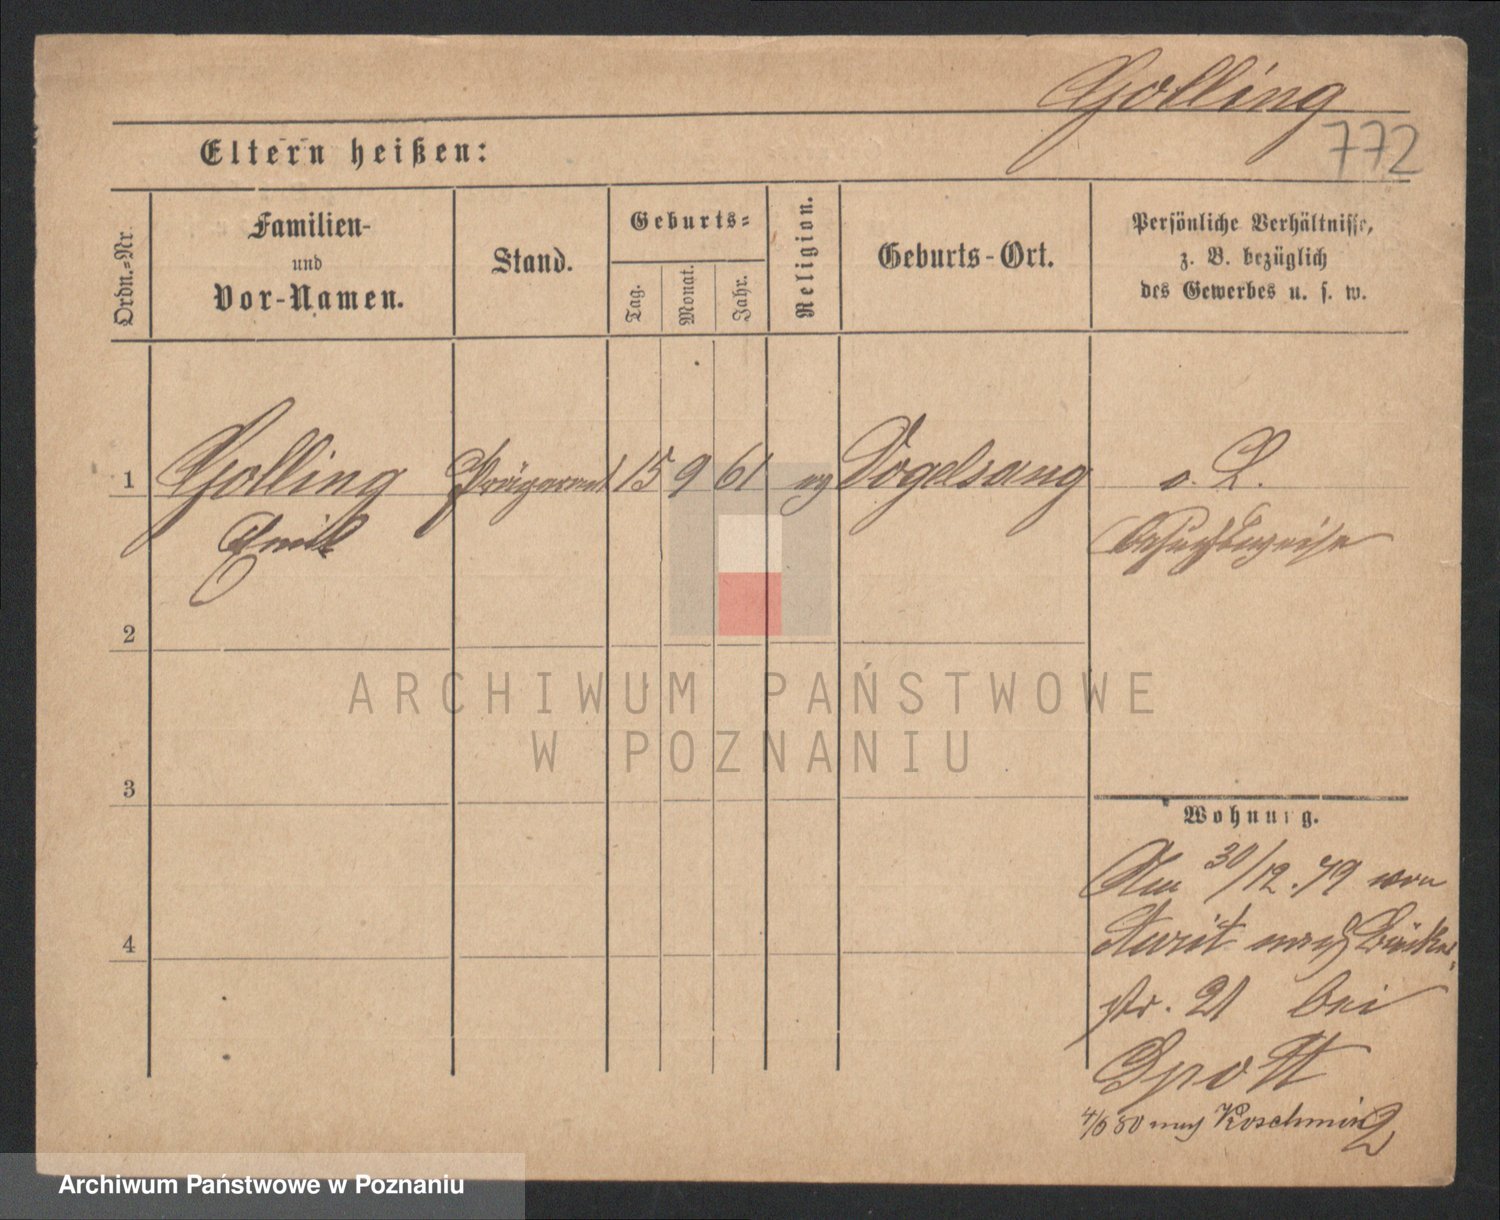 Golling
772
Eltern heißen:
Ordn.-Nr.
Familien-
und
Vor-Namen.
Stand.
Geburts-
Tag.
Monat.
Jahr.
Religion.
Geburts-Ort.
Persönliche Verhältnisse,
z. B. bezüglich
des Gewerbes u. s. w.
1
Golling
Emil
15
9
61
ev
Vogelsang
o. L.
besuchsweise
2
ARCHIWUM PAŃSTWOWE
W POZNANIU
3
Wohnung.
Am 30/12.79 von
nach Bäcker-
str. 21 bei
Spott
80 nach Koschmin
4
Archiwum Państwowe w Poznaniu